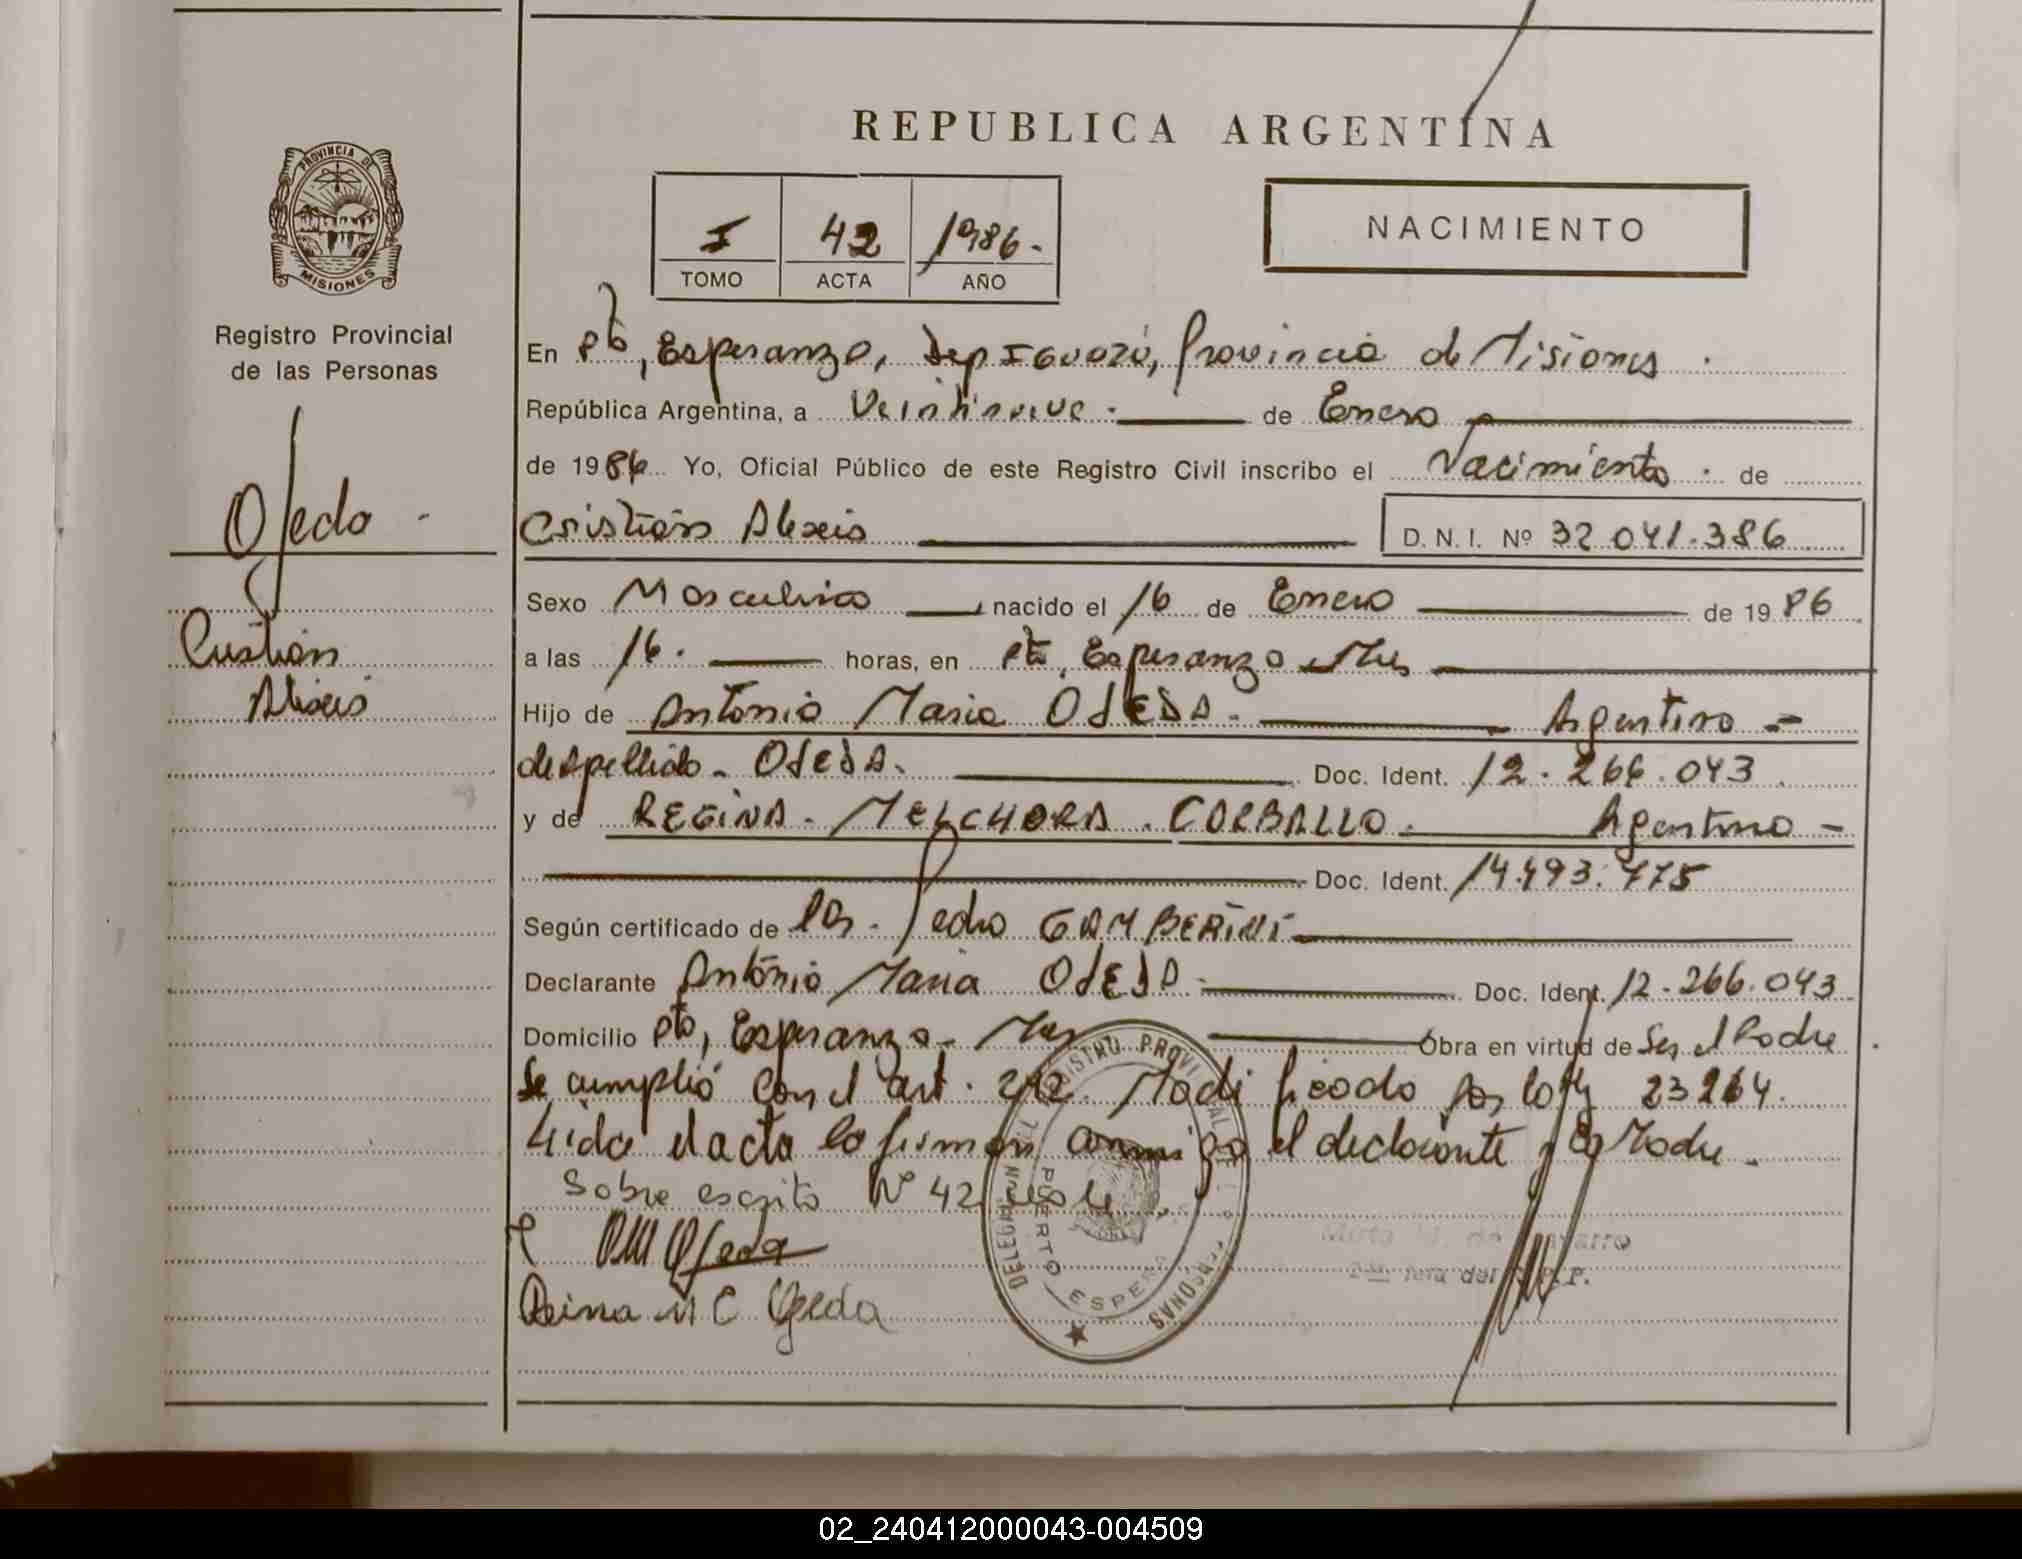 REPUBLICA ARGENTINA
PROVINCIA DE
MISIONES
Registro Provincial
de las Personas
Ojeda -
Cristian
Alexis
I 42 1986.-
TOMO ACTA AÑO
NACIMIENTO
En Pto, Esperanza, Dep Iguazú, Provincia de Misiones .
República Argentina, a Veintinueve. de Enero
de 1986 Yo, Oficial Público de este Registro Civil inscribo el Nacimiento . de
Cristian Alexis D. N. I. Nº 32 041.386
Sexo Masculino nacido el 16 de Enero de 19 86
a las 16. horas, en Pto, Esperanza Mnes
Hijo de Antonio Maria OJEDA. Argentino -
de apellido - OJEDA. Doc. Ident. 12.266.043
y de REGINA - MELCHORA . CORBALLO. Argentina -
Doc. Ident. 14.493.775
Según certificado de Pedro GAMBERINI
Declarante Antonio Maria OJEDA - Doc. Ident. 12.266.043
Domicilio Pto, Esperanza - Mnes Obra en virtud de Ser el Padre
Se cumplió con el art. 242. Modificado por la ley 23264.
Leida el acta la firman conmigo el declarante y la Madre.
Sobre escrito Nº 42 vale
Ojeda
Reina M C Ojeda
PUERTO ESPERANZA
02_240412000043-004509